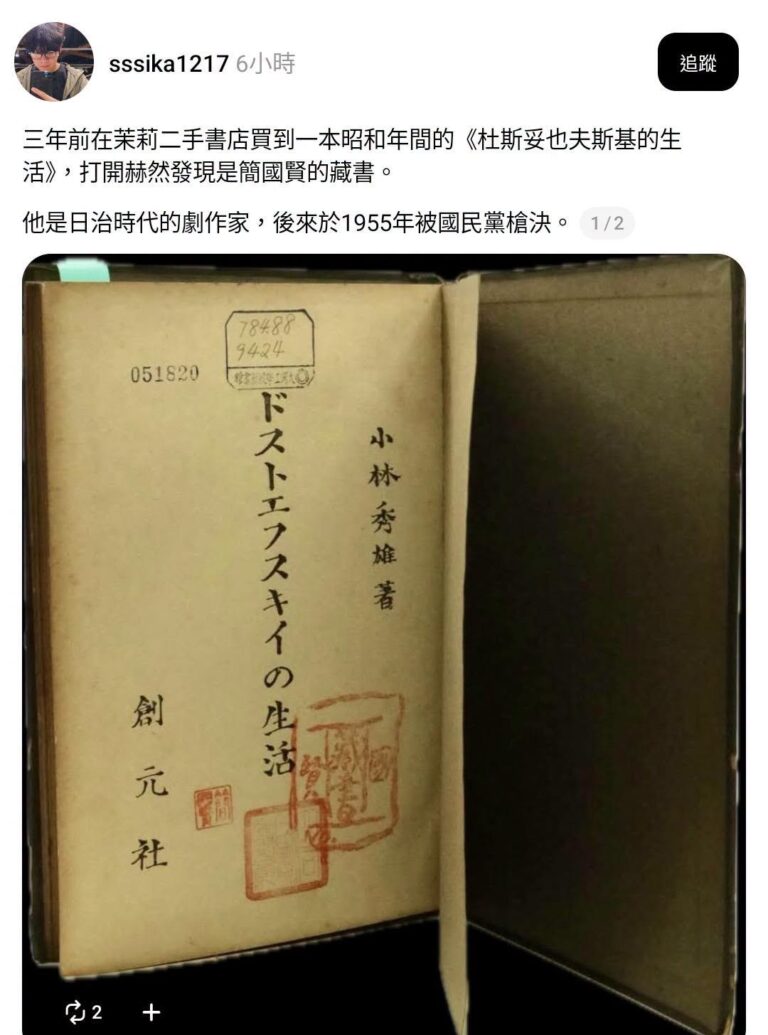 sssika1217 6小時
追蹤
三年前在茉莉二手書店買到一本昭和年間的《杜斯妥也夫斯基的生
活》，打開赫然發現是簡國賢的藏書。
他是日治時代的劇作家，後來於1955年被國民黨槍決。 1/2
78488
9424
051820
小林秀雄著
ドストエフスキイの生活
創元社
國
藏書
賢
2